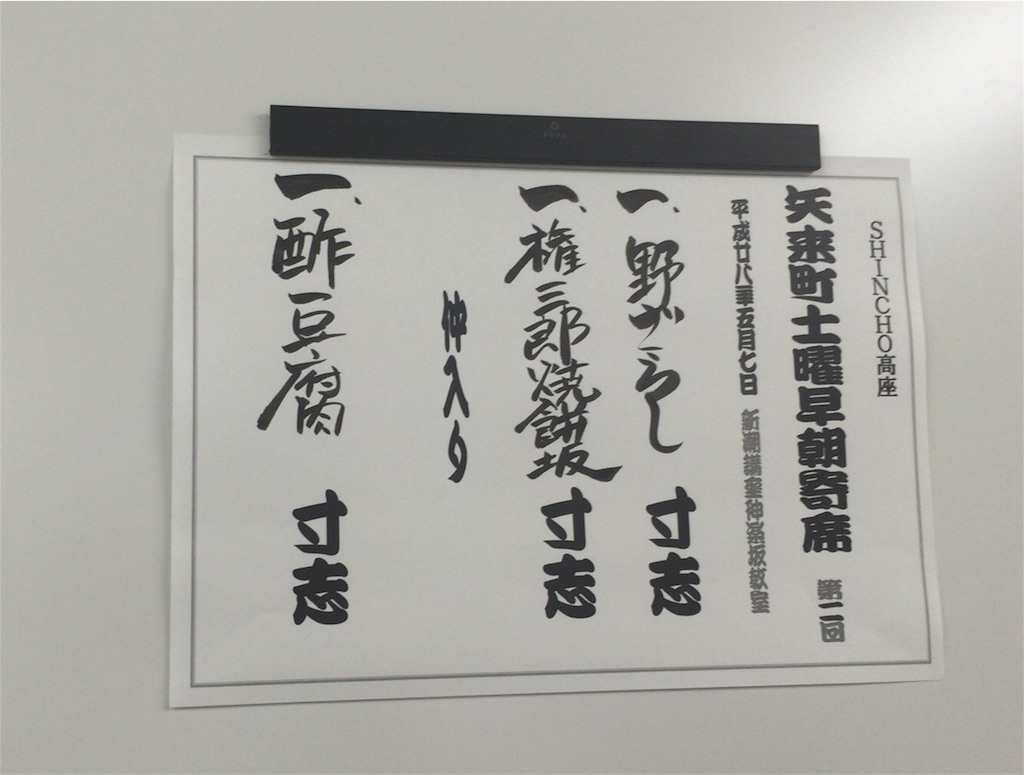 SHINCHO高座
矢来町土曜早朝寄席 第二回
平成廿八年五月七日 新潮講座神楽坂教室
一、野ざらし 寸志
一、権三郎焼餅坂 寸志
仲入り
一、酢豆腐 寸志